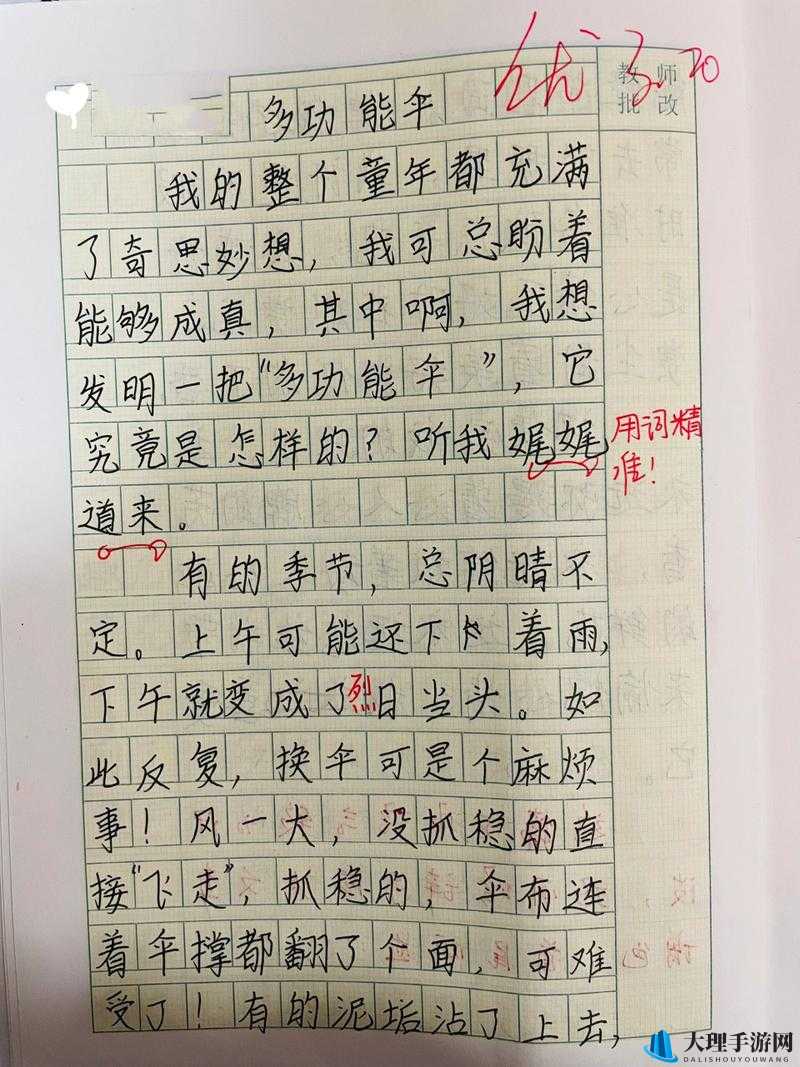 优 3.20
教师
批改
多功能伞
我的整个童年都充满
了奇思妙想，我可总盼着
能够成真，其中啊，我想
发明一把“多功能伞”，它
究竟是怎样的？听我娓娓
用词精
准！
道来。
有的季节，总阴晴不
定。上午可能还下着雨，
下午就变成了烈日当头。如
此反复，换伞可是个麻烦
事！风一大，没抓稳的直
接“飞走”，抓稳的，伞布连
着伞撑都翻了个面，可难
受了！有的泥垢沾了上去，
大理手游网
DALISHOUYOUWANG